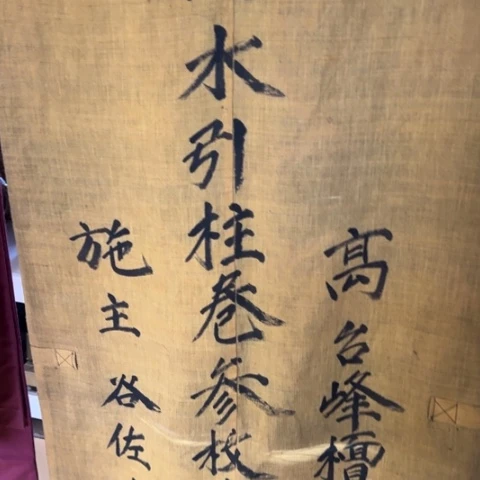 髙台峰檀
水引柱巻参枚
施主 谷佐